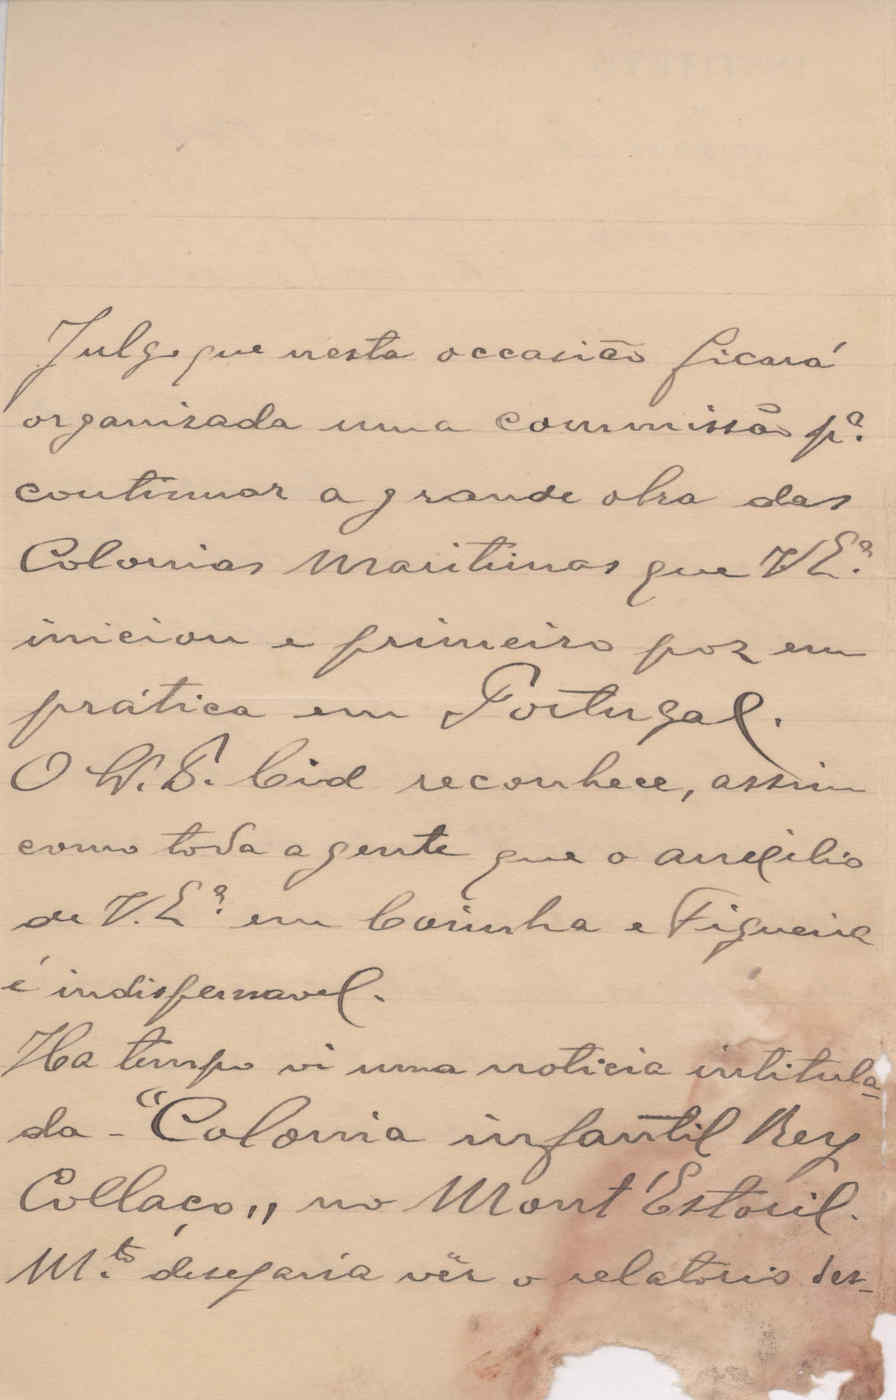 Julgo que nesta occasião ficará
organisada uma commissão pª.
continuar a grande obra das
Colonias Maritimas que V Eª.
iniciou e primeiro poz em
prática em Portugal.
O W. S. Cid reconhece, assim
como toda a gente que o auxilio
de V. Eª. em Corunha e Figueira
é indispensavel.
Ha tempo vi uma noticia intitula-
da - "Colonia infantil Rey
Collaço,, no Mont'Estoril.
M.to desejaria vêr o relatorio des-